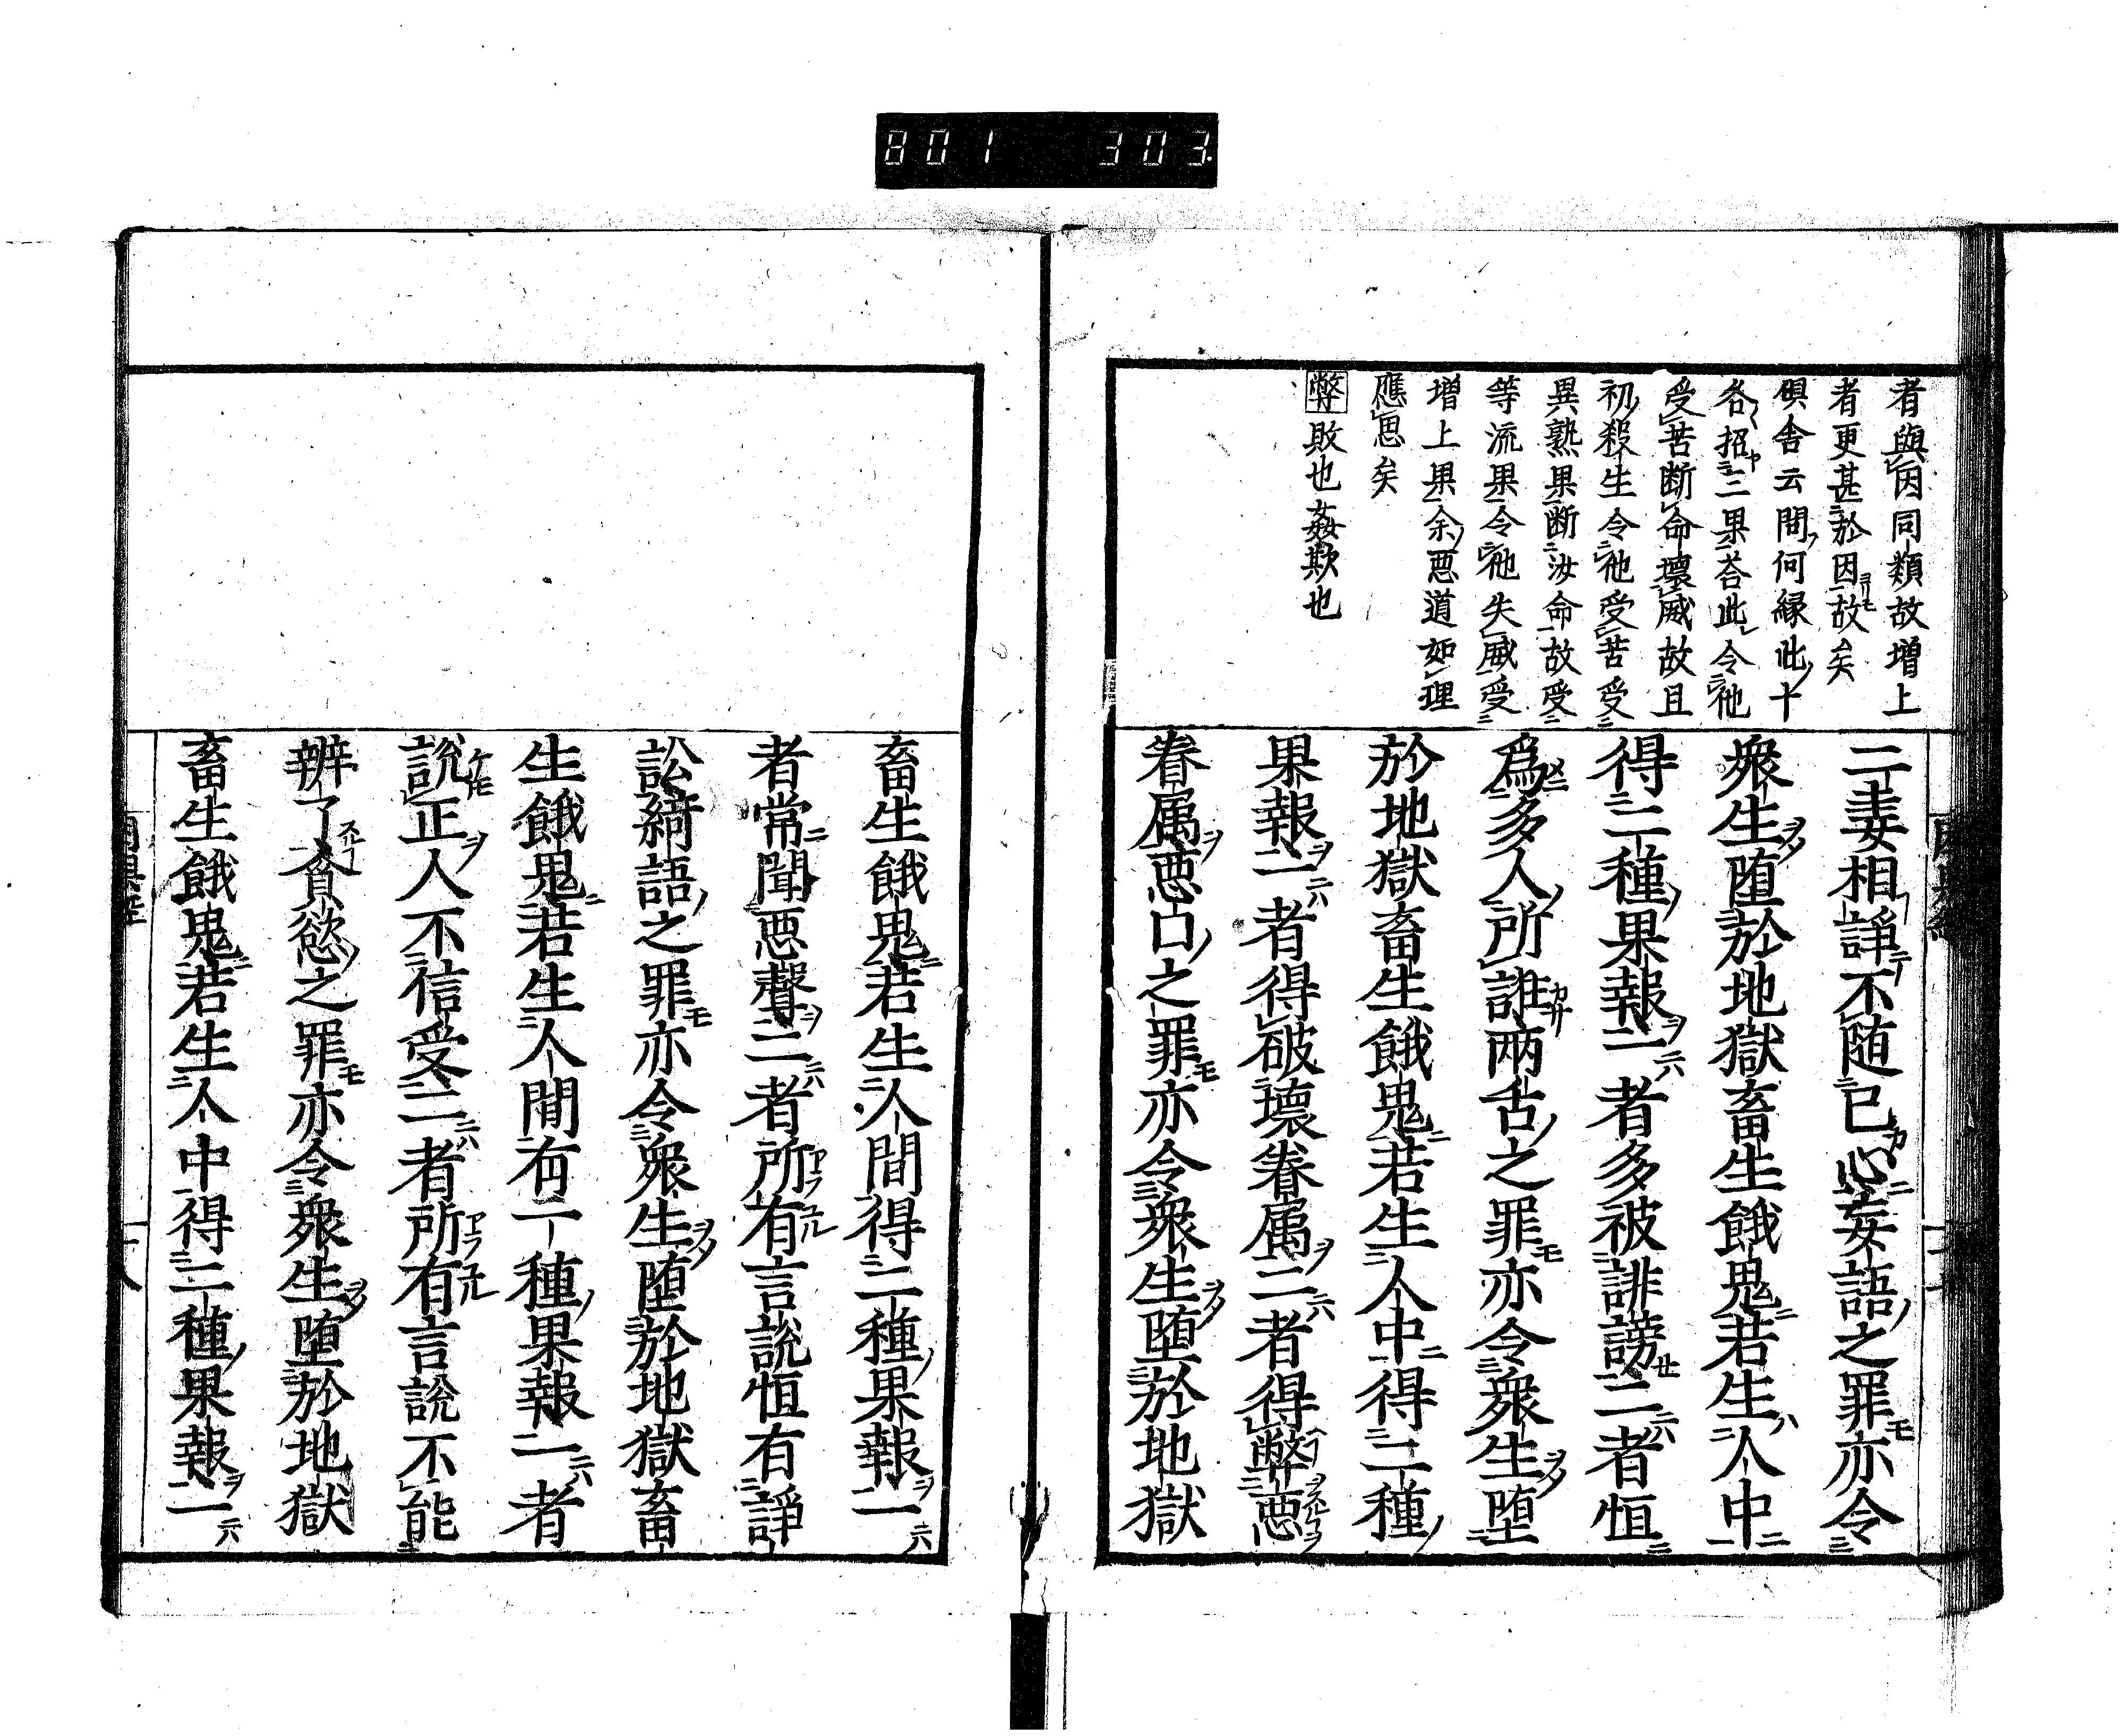 801 303
者與因同類故増上
者更甚於因故矣
倶舎云問何縁此十
各招三果荅此令他
受苦断命壊威故且
初殺生令他受苦受
異熟果断汝命故受
等流果令他失威受
増上果余悪道如理
應思矣
弊敗也姦欺也
二妻相諍不随己心妄語之罪亦令
衆生堕於地獄畜生餓鬼若生人中
得二種果報一者多被誹謗二者恒
為多人所誑兩舌之罪亦令衆生堕
於地獄畜生餓鬼若生人中得二種
果報一者得破壊眷属二者得弊悪
眷属悪口之罪亦令衆生堕於地獄
畜生餓鬼若生人間得二種果報一
者常聞悪聲二者所有言說恒有諍
訟綺語之罪亦令衆生堕於地獄畜
生餓鬼若生人間有二種果報一者
說正人不信受二者所有言說不能
辨了貪慾之罪亦令衆生堕於地獄
畜生餓鬼若生人中得二種果報一